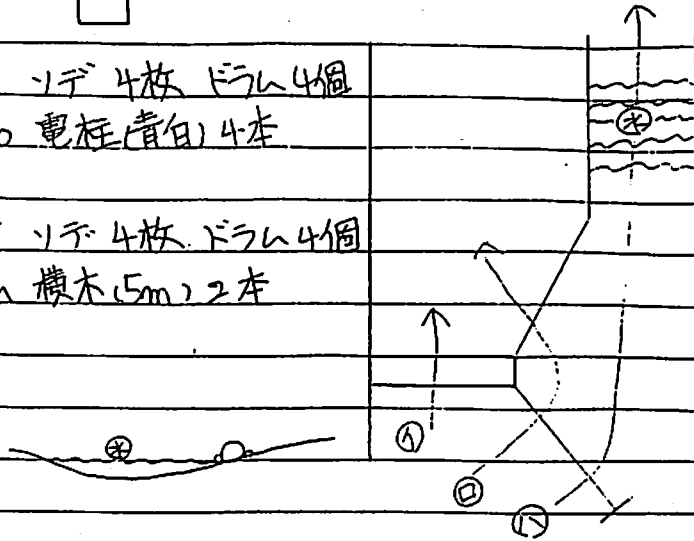 ソデ 4枚 ドラム 4個
電柱(青白) 4本
ソデ 4枚 ドラム 4個
横木(5m) 2本
水
水
イ
ロ
ハ